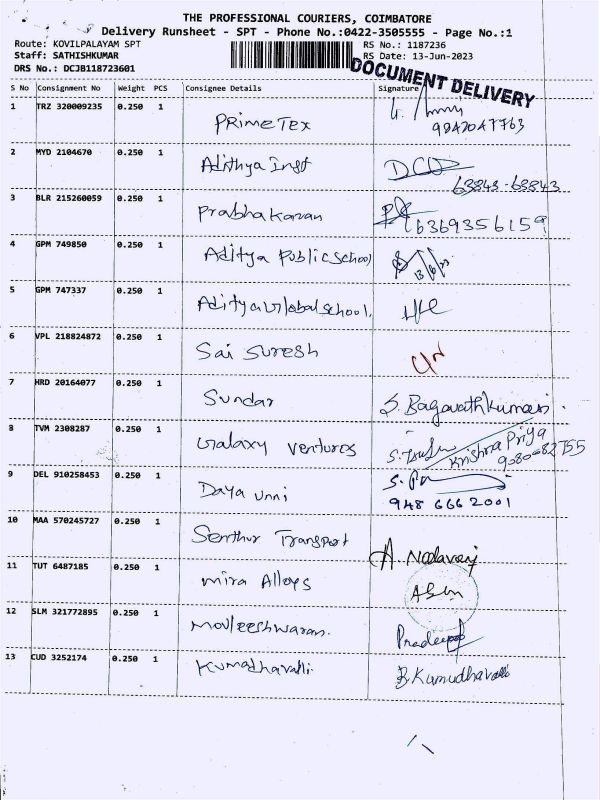 THE PROFESSIONAL COURIERS, COIMBATORE
Delivery Runsheet - SPT - Phone No.:0422-3505555 - Page No.:1
Route: KOVILPALAYAM SPT
Staff: SATHISHKUMAR
DRS No.: DCJB118723601
RS No.: 1187236
RS Date: 13-Jun-2023
DOCUMENT DELIVERY
S No Consignment No Weight PCS Consignee Details Signature
1 TRZ 320009235 0.250 1 PRimeTex
9842047763
2 MYD 2104670 0.250 1 Adithya Inst
63843-63843
3 BLR 215260059 0.250 1 Prabhakaran 6369356159
4 GPM 749850 0.250 1 Aditya Public School 13/6/23
5 GPM 747337 0.250 1 Aditya Global School.
6 VPL 218824872 0.250 1 Sai Suresh
7 HRD 20164077 0.250 1 Sundar S. Bagavathkumari
8 TVM 2308287 0.250 1 Galaxy Ventures Krishna Priya
9 DEL 910258453 0.250 1 Daya Unni
948 666 2001
10 MAA 570245727 0.250 1 Senthur Transport
11 TUT 6487185 0.250 1 Mira Alloys
12 SLM 321772895 0.250 1 Mouleeshwaran. Pradeep
13 CUD 3252174 0.250 1 Kumudhavalli B. Kumudhavalli